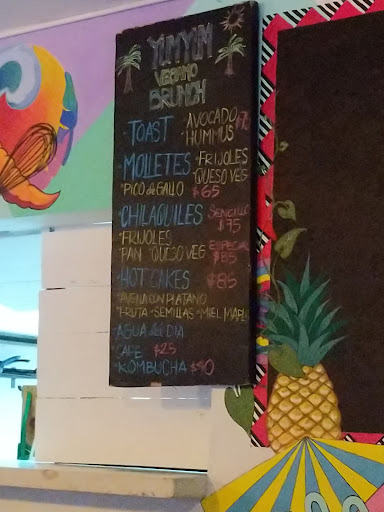 YUM YUM
VEGANO
BRUNCH
-TOAST -AVOCADO
-HUMMUS $70
-MOLLETES -FRIJOLES
-QUESO VEG
-PICO de GALLO $65
-CHILAQUILES SENCILLO
$75
-FRIJOLES
PAN -QUESO VEG ESPECIAL
$85
-HOT CAKES $85
*AVENA CON PLATANO
*FRUTA *SEMILLAS *MIEL MAPLE
-AGUA del DIA
-CAFE $25
-KOMBUCHA $40